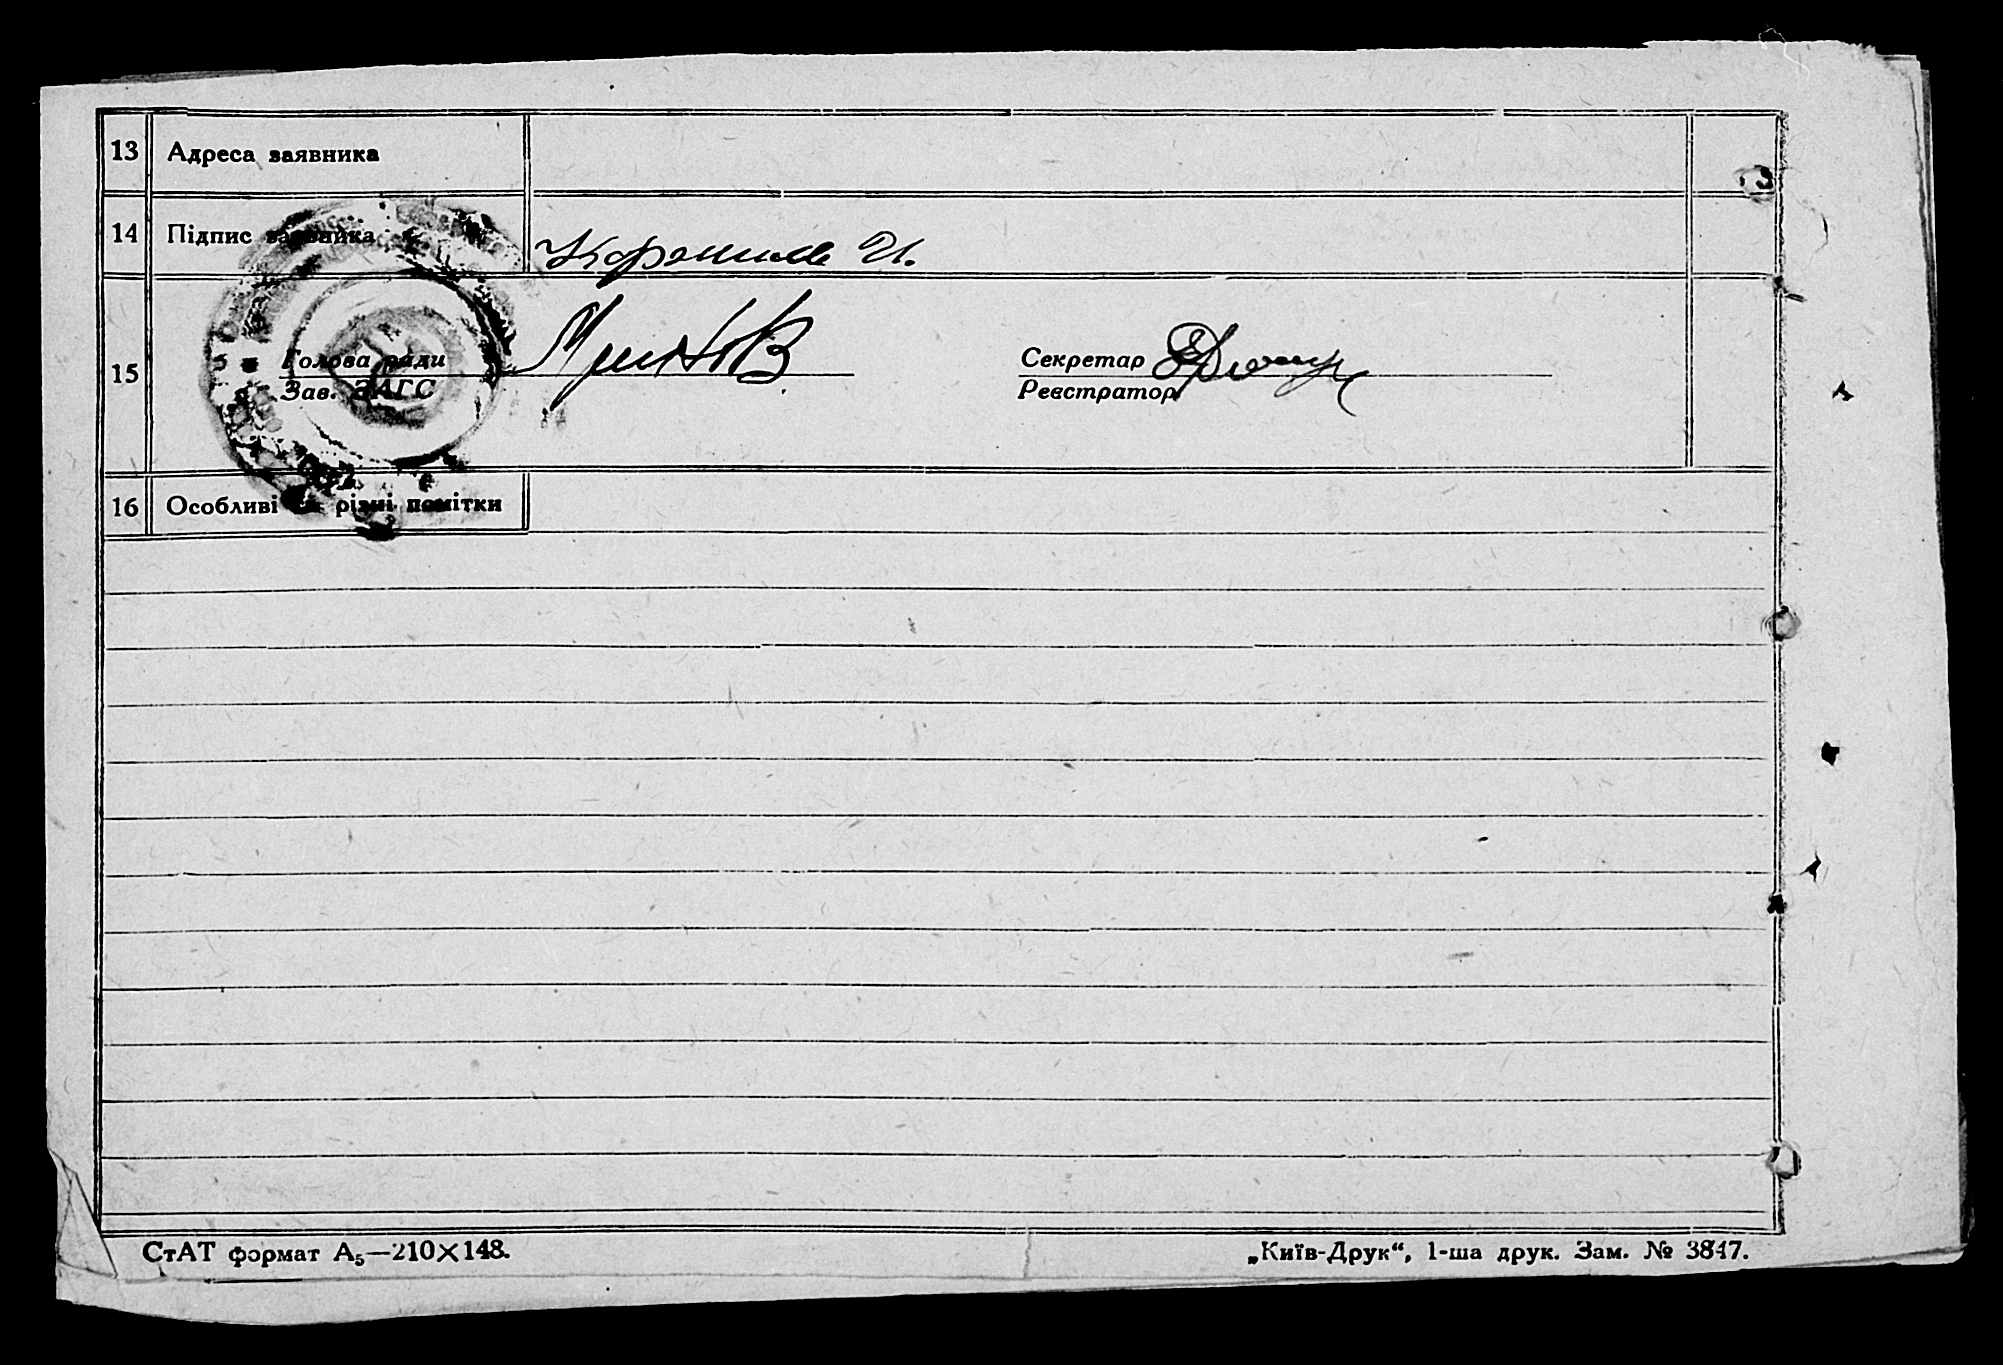 13 Адреса заявника
14 Підпис заявника
15
Голова ради
Секретар
Зав. ЗАГС
Реєстратор
16 Особливі та різні помітки
СтАТ формат А₅—210×148.
„Київ-Друк“, 1-ша друк. Зам. № 3847.